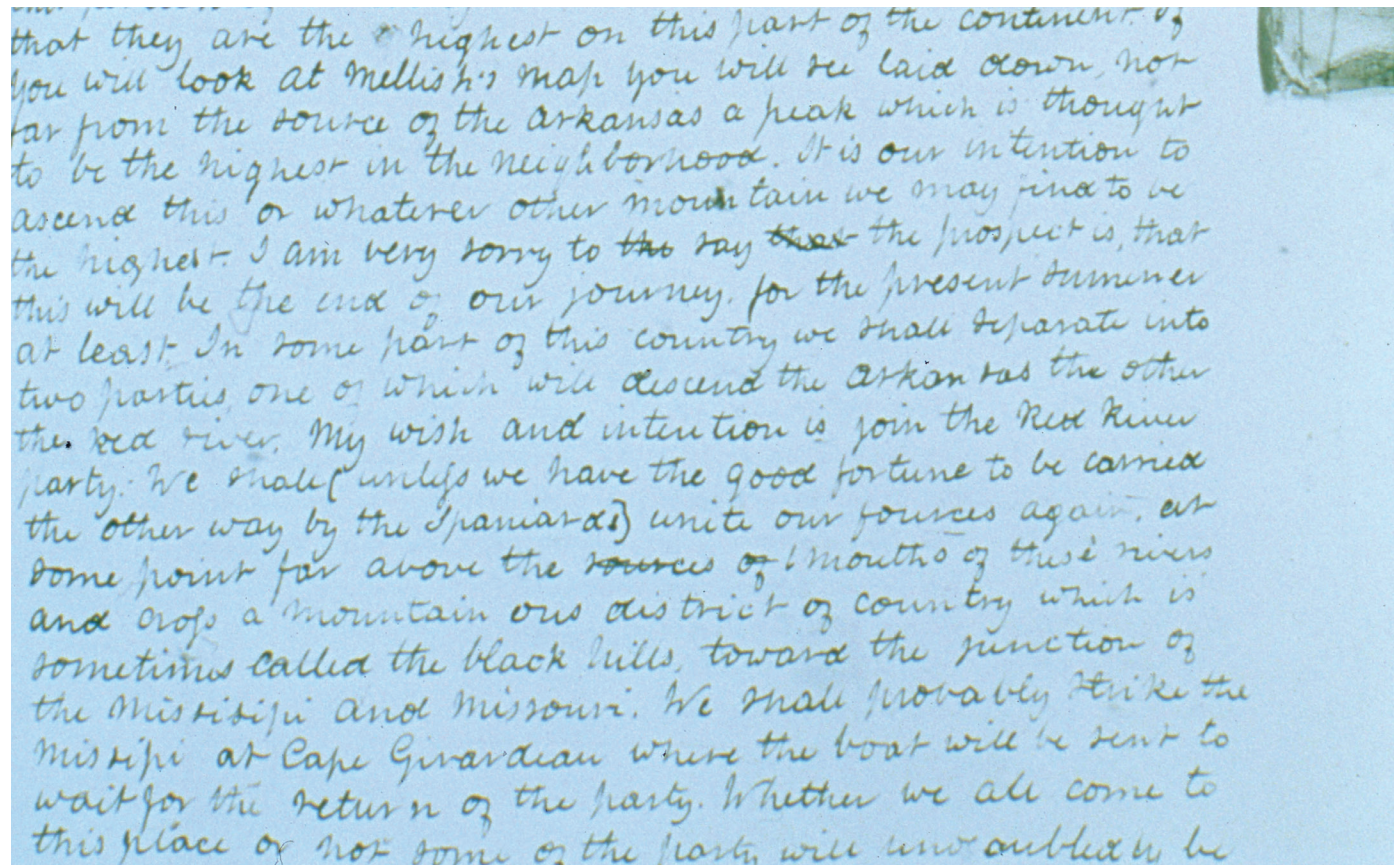 that they are the highest on this part of the continent. If
you will look at Mellish's map you will see laid down, not
far from the source of the Arkansas a peak which is thought
to be the highest in the neighborhood. It is our intention to
ascend this or whatever other mountain we may find to be
the highest. I am very sorry to the say that the prospect is, that
this will be the end of our journey. for the present summer
at least. In some part of this country we shall separate into
two parties, one of which will descend the Arkansas the other
the Red river. My wish and intention is join the Red River
party. We shall (unless we have the good fortune to be carried
the other way by the Spaniards) unite our fources again, at
some point far above the sources of mouths of these rivers
and cross a mountain ous district of country which is
sometimes called the black hills, toward the junction of
the Missisipi and Missouri. We shall probably strike the
Missipi at Cape Girardeau where the boat will be sent to
wait for the return of the party. Whether we all come to
this place or not some of the party will undoubtedly be